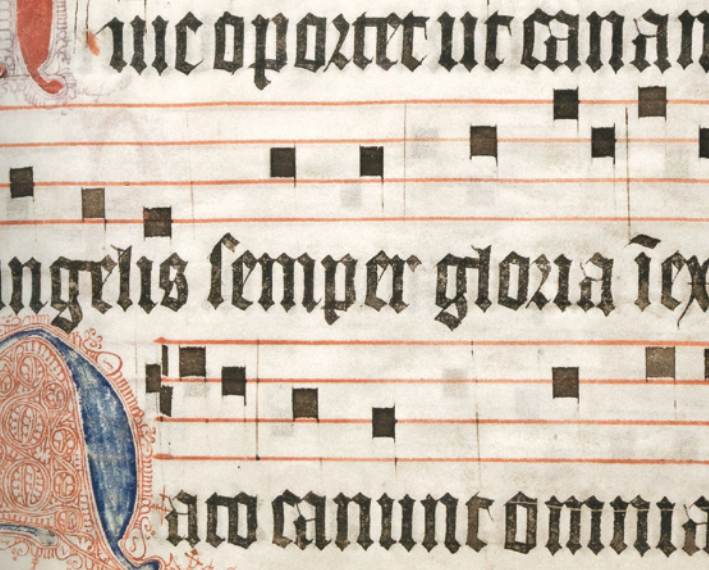 uic oportet ut canan
ngelis semper gloria īex
Nato canunt omnia